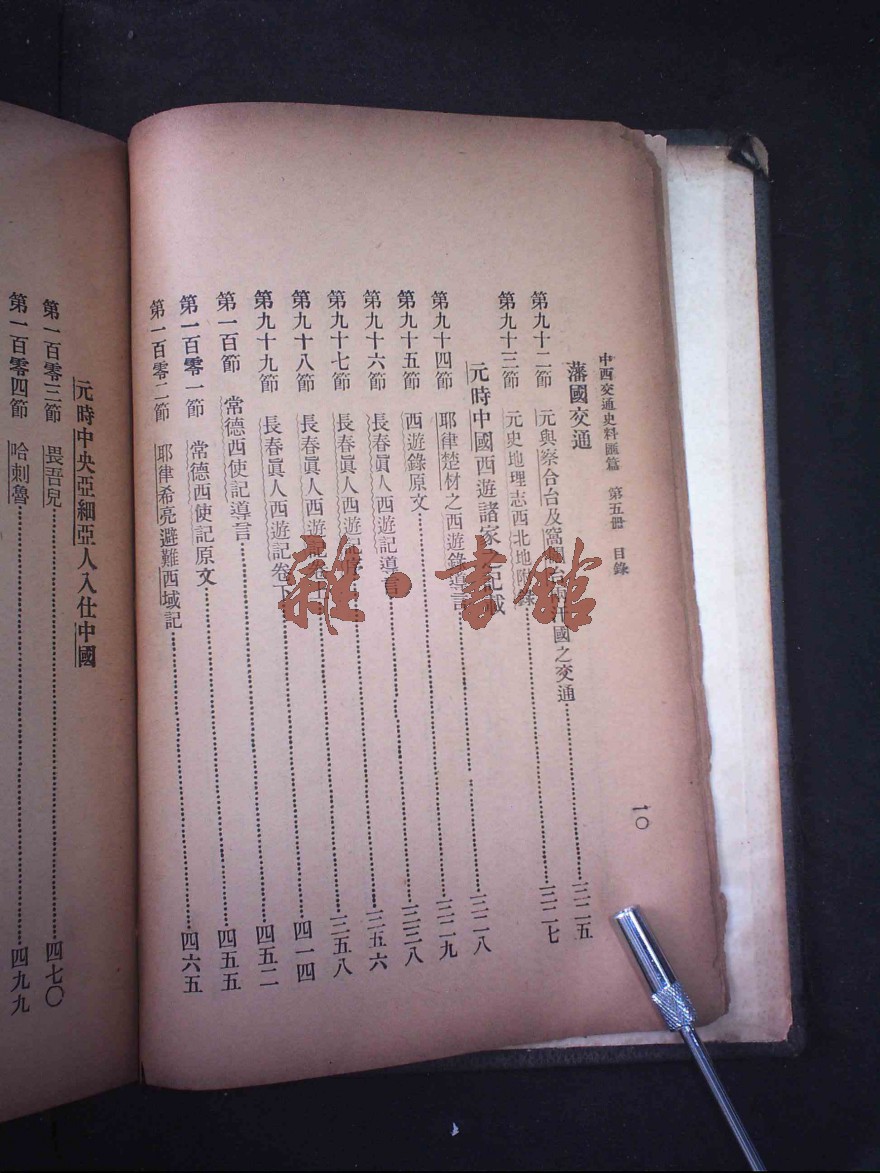 中西交通史料匯篇 第五冊 目錄
一〇
藩國交通
第九十二節 元與察合台及窩闊台兩汗國之交通……三二五
第九十三節 元史地理志西北地附錄……三二七
元時中國西遊諸家之記載
第九十四節 耶律楚材之西遊錄導言……三二八
第九十五節 西遊錄原文……三二九
第九十六節 長春眞人西遊記導言……三三八
第九十七節 長春眞人西遊記……三五六
第九十八節 長春眞人西遊記卷上……三五八
第九十九節 長春眞人西遊記卷下……四一四
第一百節 常德西使記導言……四五二
第一百零一節 常德西使記原文……四五五
第一百零二節 耶律希亮避難西域記……四六五
元時中央亞細亞人入仕中國
第一百零三節 畏吾兒……四七〇
第一百零四節 哈剌魯……四九九
雜·書館